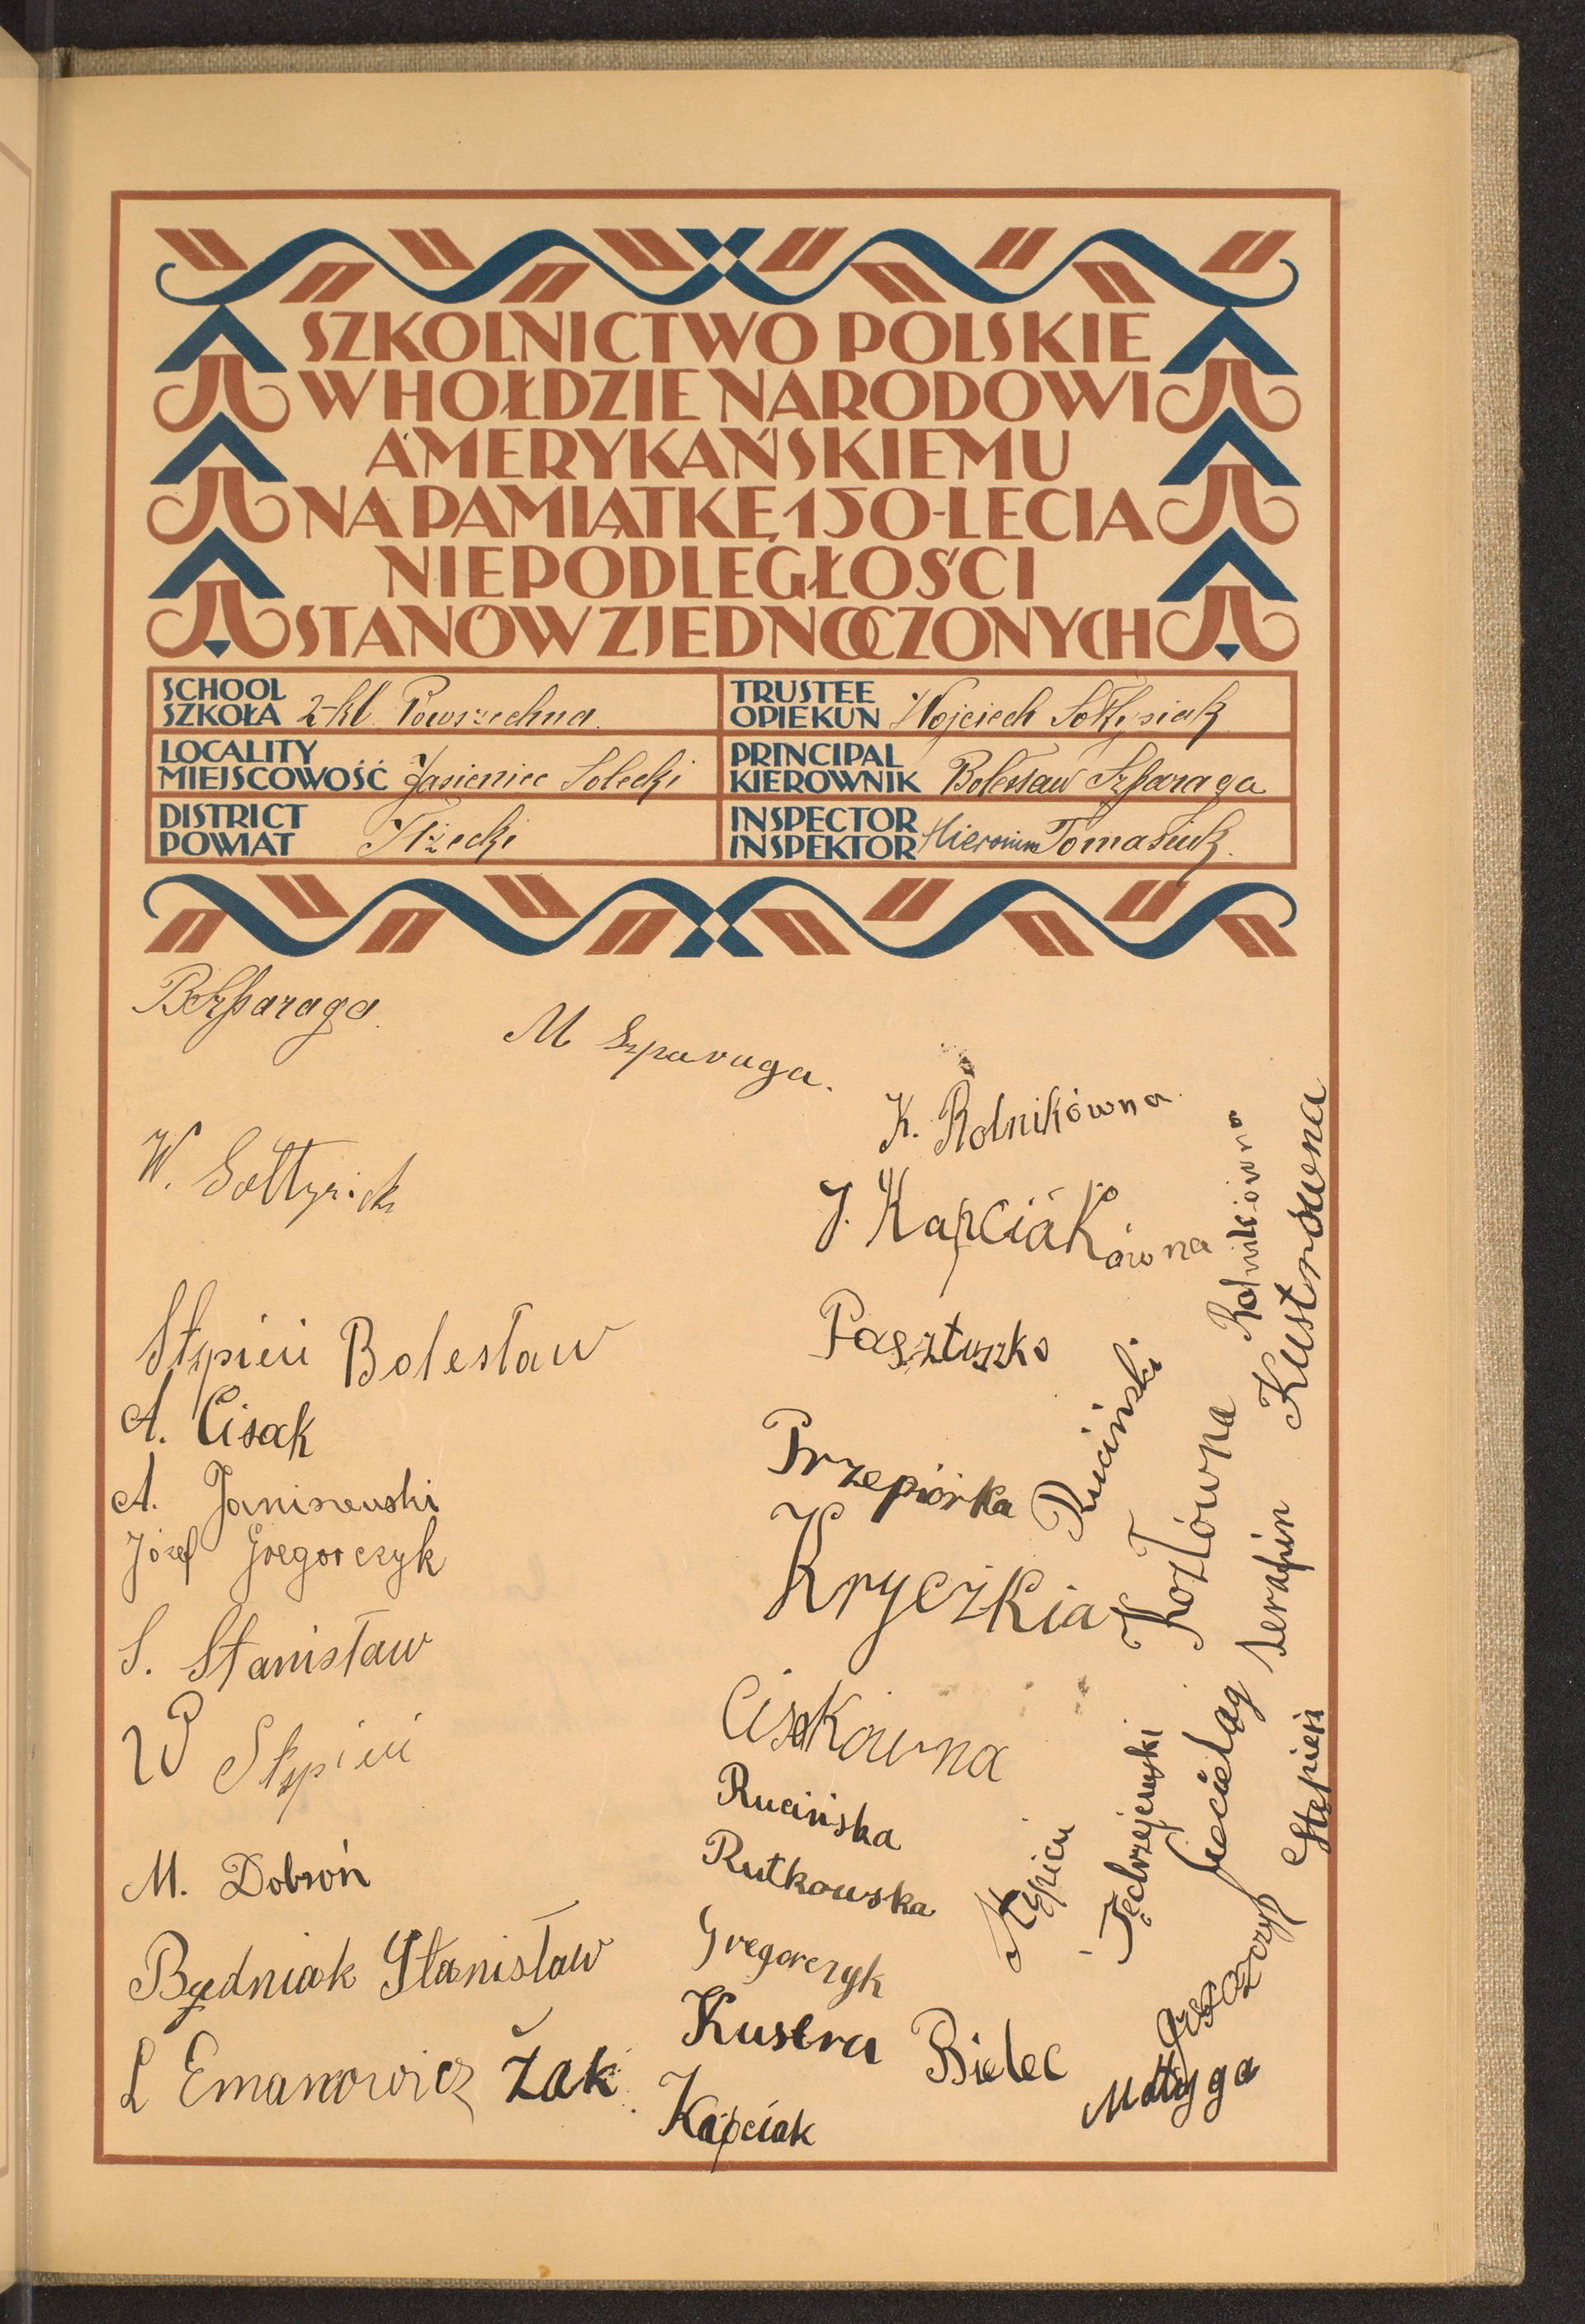 SZKOLNICTWO POLSKIE
W HOŁDZIE NARODOWI
AMERYKAŃSKIEMU
NA PAMIĄTKĘ 150-LECIA
NIEPODLEGŁOŚCI
STANÓW ZJEDNOCZONYCH
SCHOOL
SZKOŁA 2-kl Powszechna.
LOCALITY
MIEJSCOWOŚĆ Jasieniec Solecki
DISTRICT
POWIAT Iłżecki
TRUSTEE
OPIEKUN Wojciech Sołtysiak
PRINCIPAL
KIEROWNIK Bolesław Szparaga
INSPECTOR
INSPEKTOR Hieronim Tomasiuk.
B Szparaga.
M Szparaga.
W. Sołtysiak
Stępień Bolesław
A. Cisak
A. Janiszewski
Józef Gregorczyk
S. Stanisław
W Stępień
M. Dobroń
Będniak Stanisław
L Emanowicz Żak.
K. Rolnikówna.
J. Kapciakówna
Pasztuszko
Przepiórka
Kryczkia
Cisakówna
Rucińska
Rutkowska
Gregorczyk
Kustra
Kapciak
Bielec
Ruciński
Stępień
Kozłówna
Rolnikówna
Jędrzejewski
Kustrówna
Serafin
Stępień
Matyga